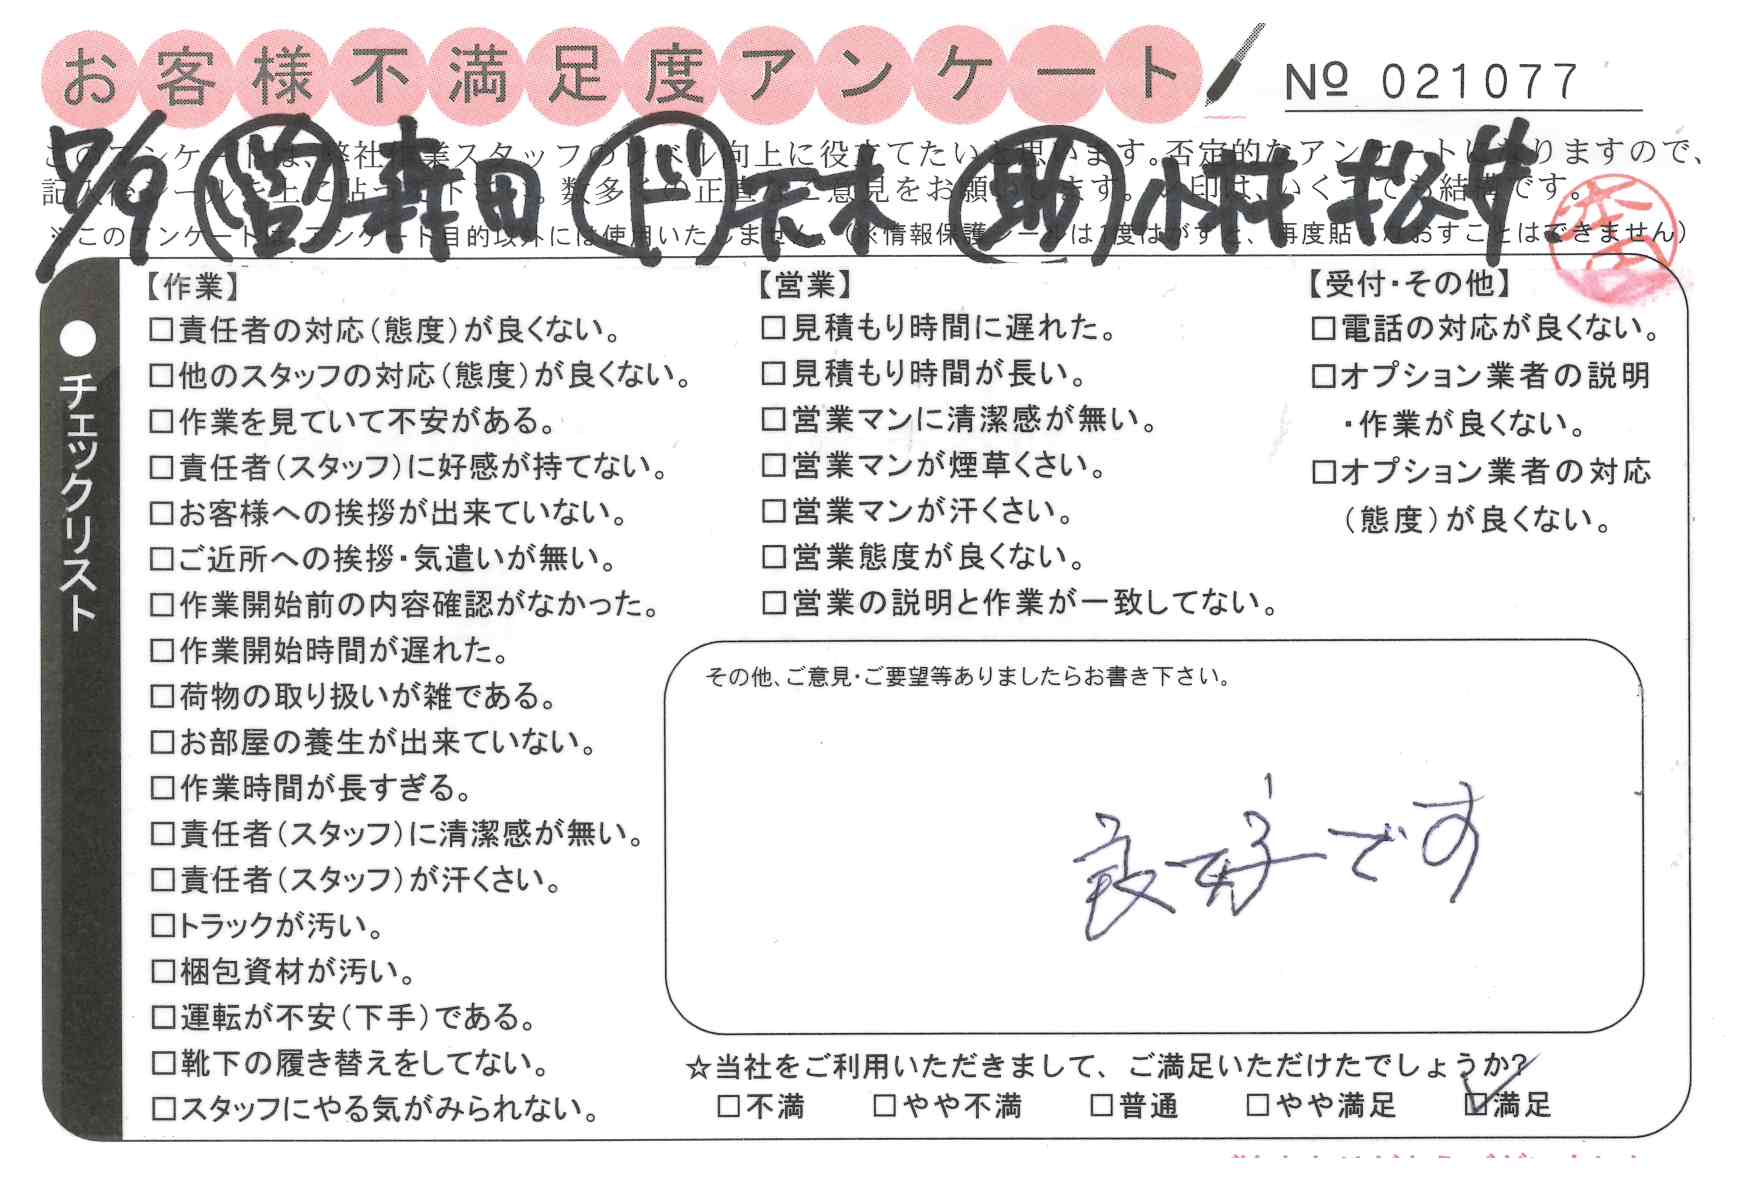 お客様不満足度アンケート
Nº 021077
このアンケートは、弊社作業スタッフのレベル向上に役立てたいと思います。否定的なアンケートになりますので、
記入後シールを上に貼って下さい。数多くの正直なご意見をお願いします。レ印は、いくつでも結構です。
※このアンケートは、アンケート目的以外には使用いたしません。(※情報保護シールは1度はがすと、再度貼りなおすことはできません)
7/9 営 森田 ド 元木 助 小林 松井
●チェックリスト
【作業】
□責任者の対応(態度)が良くない。
□他のスタッフの対応(態度)が良くない。
□作業を見ていて不安がある。
□責任者(スタッフ)に好感が持てない。
□お客様への挨拶が出来ていない。
□ご近所への挨拶・気遣いが無い。
□作業開始前の内容確認がなかった。
□作業開始時間が遅れた。
□荷物の取り扱いが雑である。
□お部屋の養生が出来ていない。
□作業時間が長すぎる。
□責任者(スタッフ)に清潔感が無い。
□責任者(スタッフ)が汗くさい。
□トラックが汚い。
□梱包資材が汚い。
□運転が不安(下手)である。
□靴下の履き替えをしてない。
□スタッフにやる気がみられない。
【営業】
□見積もり時間に遅れた。
□見積もり時間が長い。
□営業マンに清潔感が無い。
□営業マンが煙草くさい。
□営業マンが汗くさい。
□営業態度が良くない。
□営業の説明と作業が一致してない。
【受付・その他】
□電話の対応が良くない。
□オプション業者の説明
・作業が良くない。
□オプション業者の対応
(態度)が良くない。
その他、ご意見・ご要望等ありましたらお書き下さい。
良好です
☆当社をご利用いただきまして、ご満足いただけたでしょうか?
□不満 □やや不満 □普通 □やや満足 ☑満足